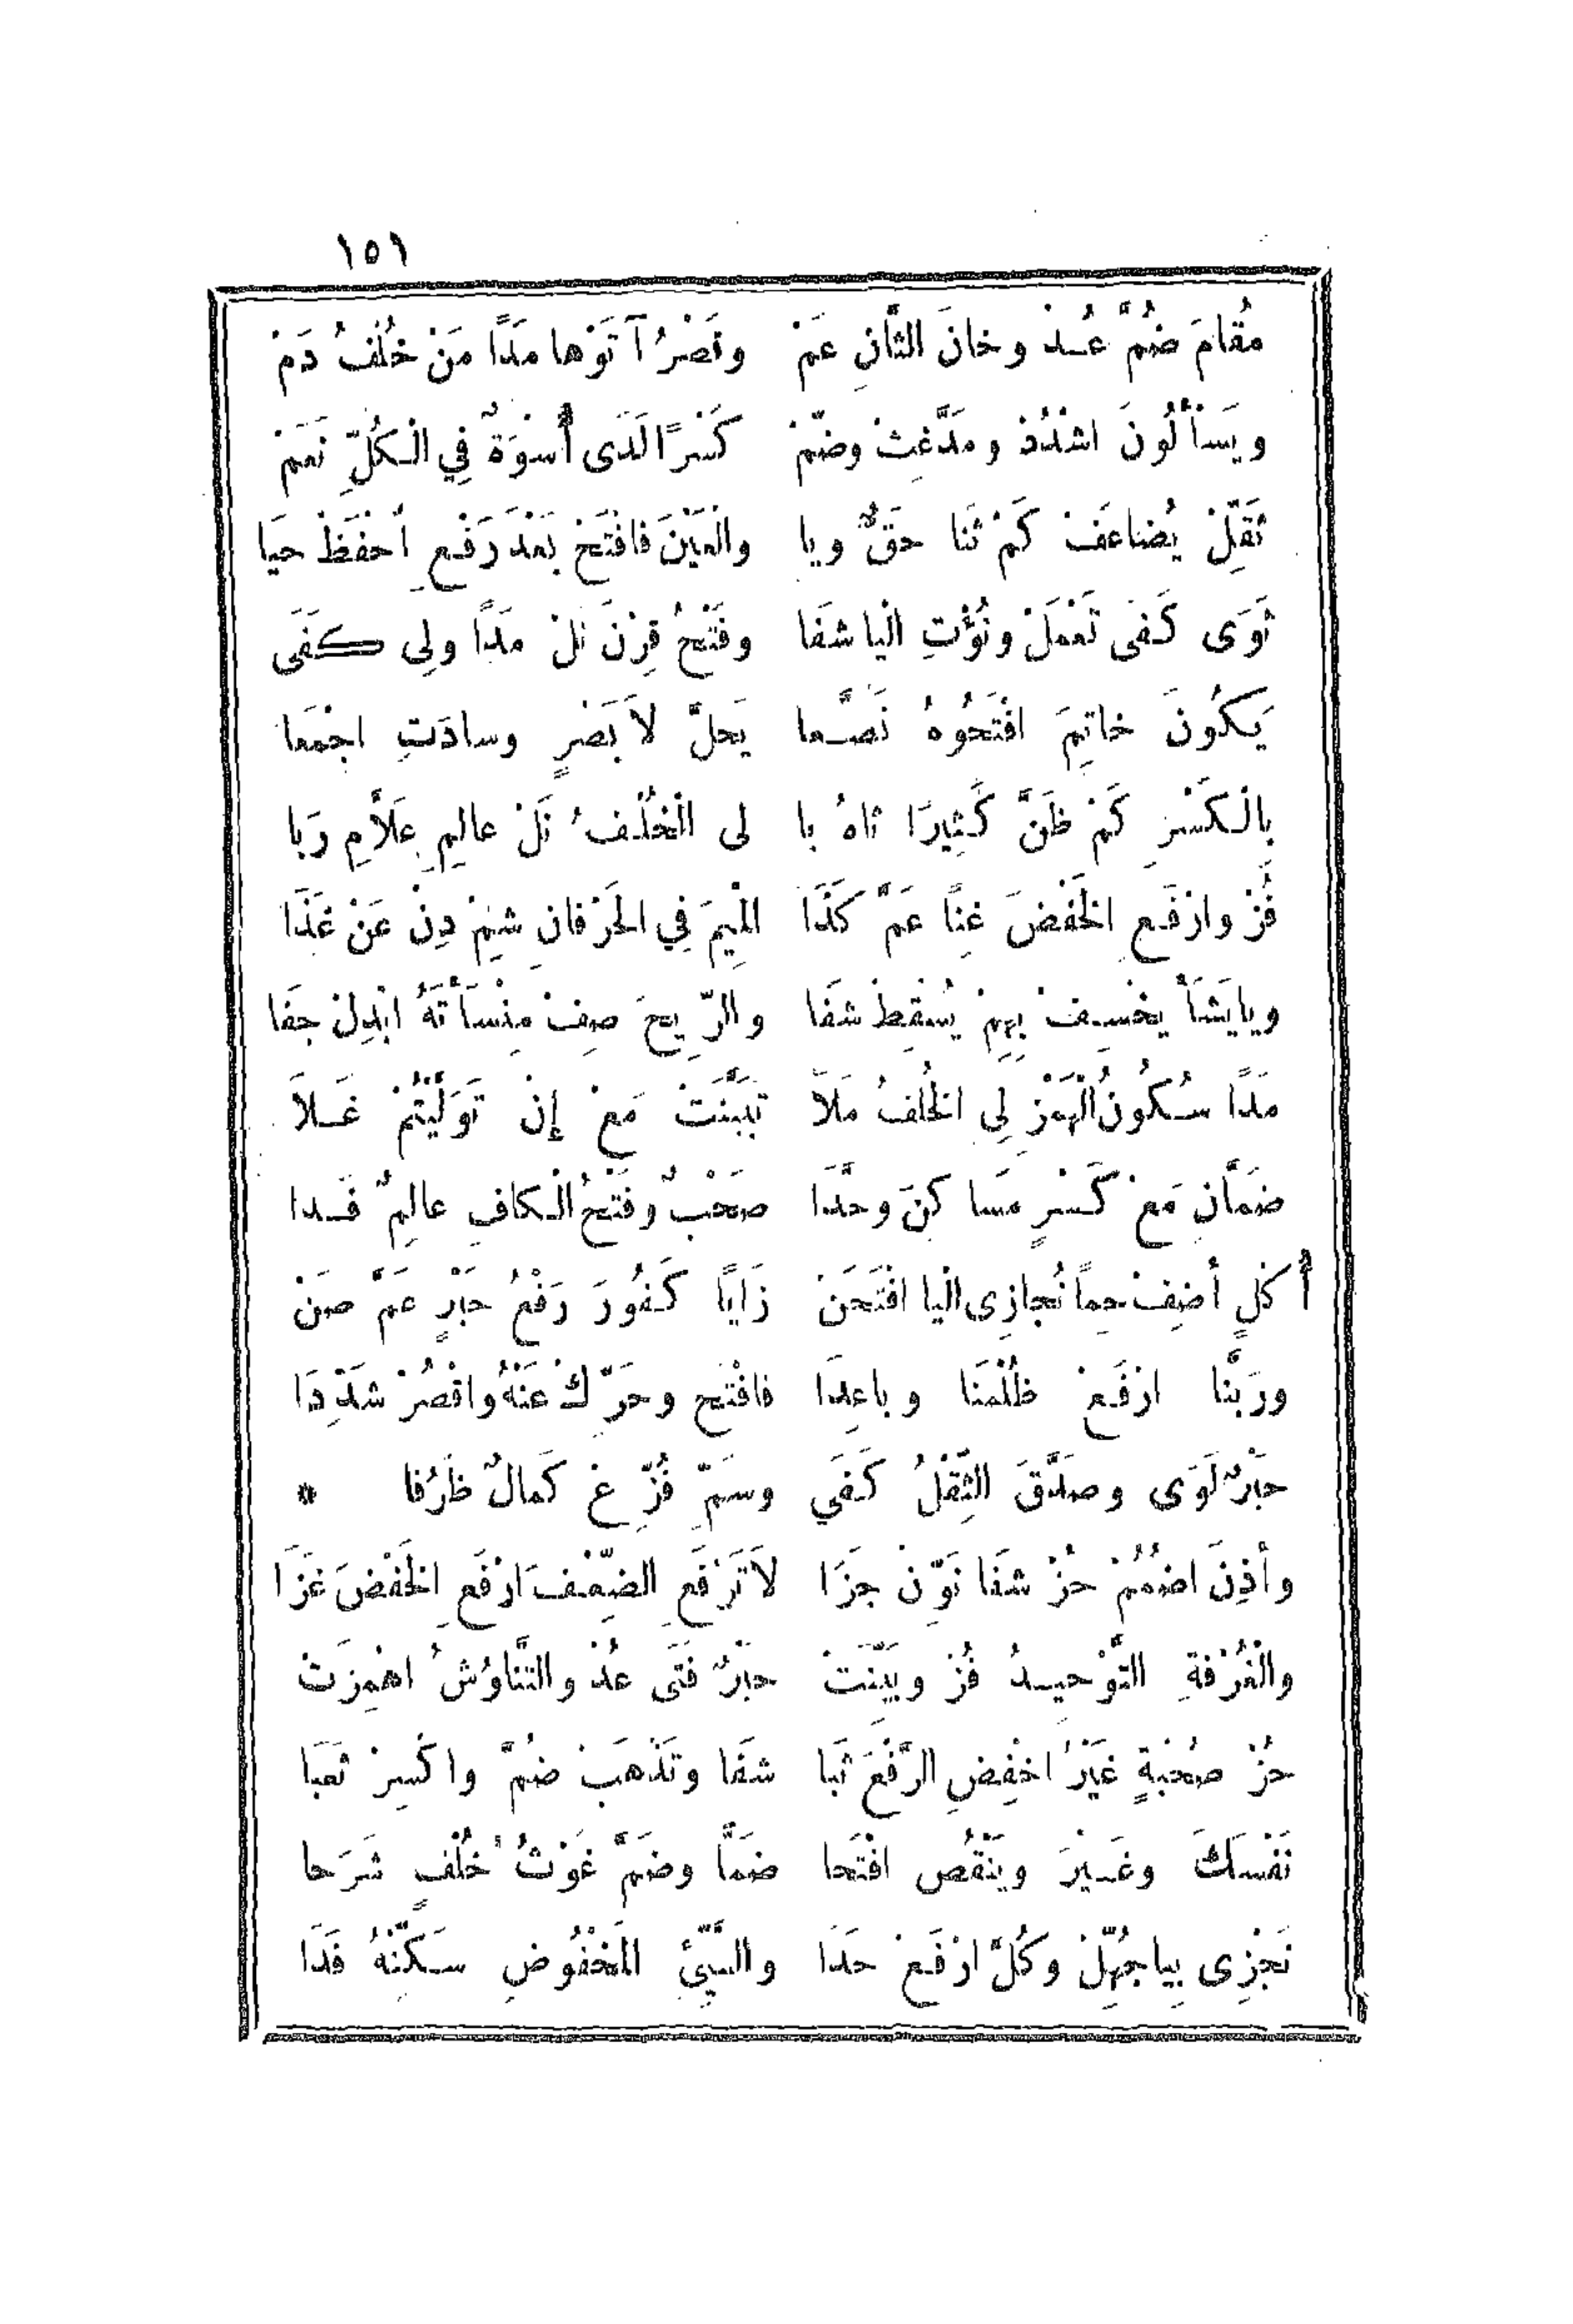 ١٥١
مُقَامَ ضُمَّ عُدْ وخانَ الثَّانِ عَمْ وقَصْرُ آتَوْها مَدًا مَنْ خُلْفُ دَمْ
ويَسْأَلُونَ اشْدُدْ ومدَّ غِثْ وضُمْ كَسْرًا لَدَى أُسْوَةٌ فِي الْكُلِّ نَعَمْ
ثَقِّلْ يُضاعَفْ كَمْ ثَنا حَقٌّ ويا والْعَيْنَ فافْتَحْ بَعْدَ رَفْعٍ احْفَظْ حَيَا
ثَوَى كَفَى تَعْمَلْ ونُؤْتِ الْيا شَفَا وفَتْحُ قِرْنَ نَلْ مَدًا ولِى كَفَى
يَكُونَ خاتِمَ افْتَحُوهُ نَصَّعا يَحِلَّ لاَ بَصْرٍ وسادَتِ اجْمَعَا
بِالْكَسْرِ كَمْ ظَنَّ كَثِيرًا ثاهُ بِا لى الْخُلْفُ نَلْ عالِمِ عَلاَّمِ رَبا
فُزْ وارْفَعِ الْخَفْضَ غِنًا عَمَّ كَذَا الْمِيمَ فِي الْحَرْفانِ شِمْ دِنْ عَنْ غَذَا
ويا يَشَأْ يَخْسِفْ بِهِمْ يُسْقِطْ شَفَا والرِّيحَ صِفْ مِنْسَأْتَهُ ابْدِلْ حِفَا
مَدًا سُكُونُ الْهَمْزِ لِى الْخُلْفُ مَلاَ تَبَيَّنَتْ مَعْ إِنْ تَوَلَّيْتُمْ غَلاَ
ضَمَّانِ مَعْ كَسْرٍ مَسَاكِنَ وحَّدَا صَحْبٌ وفَتْحُ الْكافِ عالِمٌ فَدا
أُكْلٍ أَضِفْ حِماً نُجازِى الْيا افْتَحَنْ زَايًا كَفُورَ رَفْعُ حَبْرٍ عَمَّ صَنْ
ورَبُّنا ارْفَعْ ظُلْمَنَا وباعِدَا فافْتَحْ وحَرِّكْ عَنْهُ واقْصُرْ شَدِّدَا
حَبْرٌ لَوَى وصَدَّقَ الثِّقْلُ كَفَي وسَمِّ فُزِّعْ كَمالٌ ظَرُفا *
وأُذِنَ اضْمُمْ حُزْ شَفَا نَوِّنْ جَزَا لاَ تَرْفَعِ الضِّعْفَ ارْفَعِ الْخَفْضَ غَزَا
والْغُرْفَةِ التَّوْحِيدُ فُزْ وبَيِّنَتْ حَبْرٌ فَتًى عُدْ والتَّناوُشُ اهْمِزَتْ
حُزْ صُحْبَةٍ غَيْرُ اخْفِضِ الرَّفْعَ ثُبَا شَفَا وتَذْهَبْ ضُمَّ واكْسِرْ ثَعَبَا
نَفْسَكَ وغَيْرَ ويَنْقُصْ افْتَحا ضَمًّا وضَمَّ غَوْثُ خُلْفٍ شَرَحا
نَجْزِى بِيا جُهِّلْ وكُلُّ ارْفَعْ حَدَا والسَّيِّئِ الْمَخْفُوضِ سَكِّنْهُ فَدَا